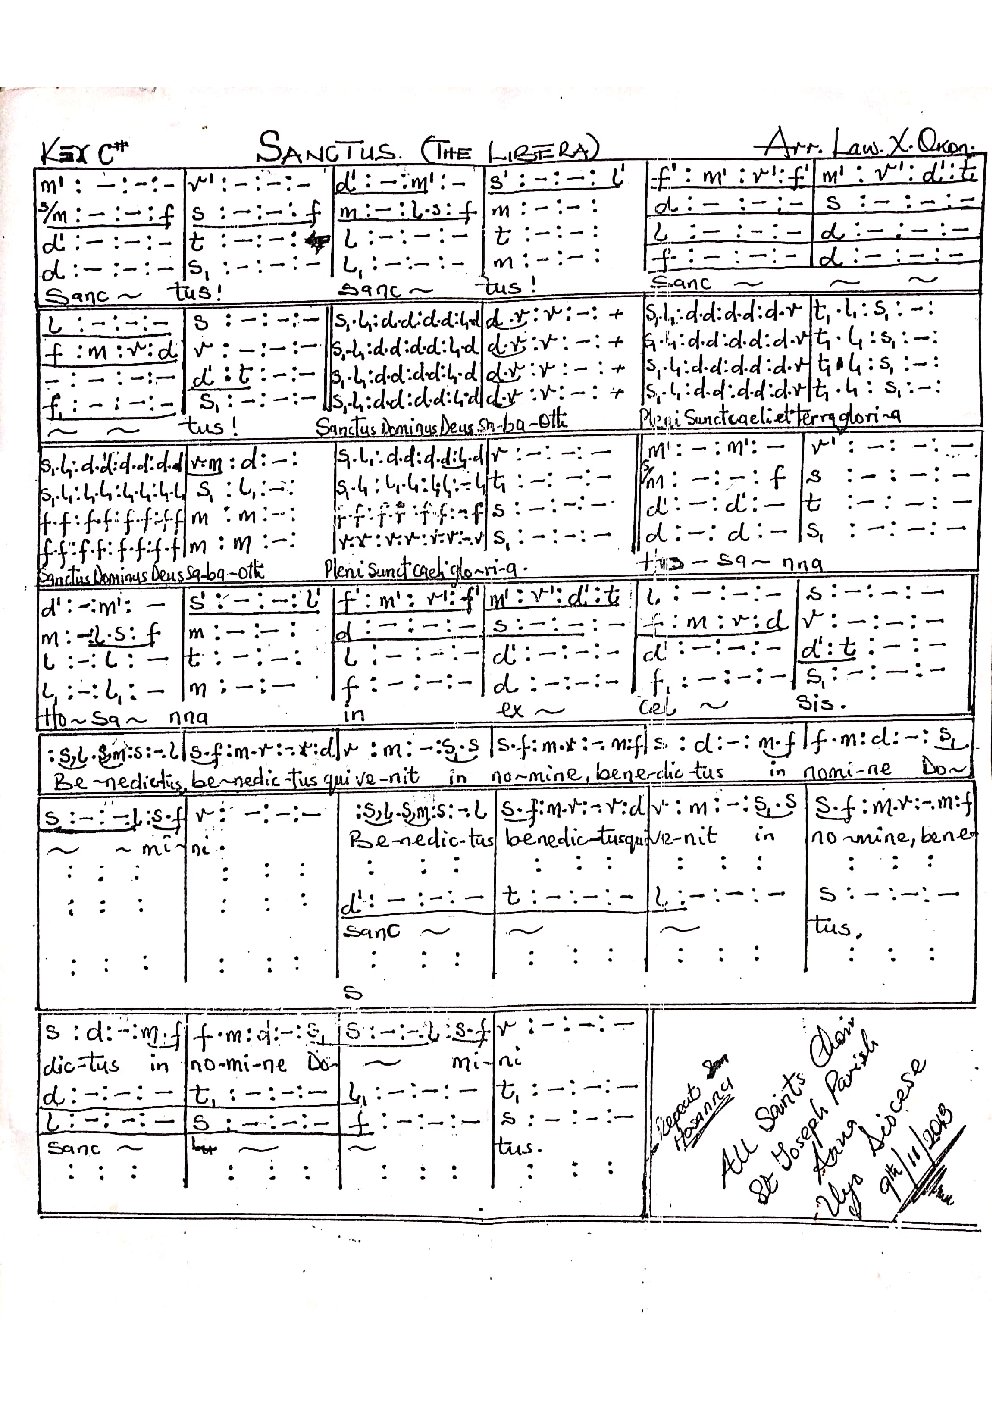 KEY C# SANCTUS. (THE LIBERA) Arr. Law. X. Okon.
m' : – : – : – | r' : – : – : – | d' : – : m' : – | s' : – : – : l' | f' : m' : r' : f' | m' : r' : d' : t
s/m : – : – : f | s : – : – : f | m : – : l . s : f | m : – : – : | d : – : – : – | s : – : – : –
d' : – : – : – | t : – : – : | l : – : – : – | t : – : – : | l : – : – : – | d : – : – : –
d : – : – : – | s₁ : – : – : – | l₁ : – : – : – | m : – : – : | f : – : – : – | d : – : – : –
Sanc ~ tus! Sanc ~ tus! Sanc ~ ~ ~
l : – : – : – | s : – : – : – || s₁ . l₁ : d . d : d . d : l₁ . d | d . r : r : – : + | s₁ . l₁ : d . d : d . d : d . r | t₁ . l₁ : s₁ : – :
f : m : r : d | r : – : – : – || s₁ . l₁ : d . d : d . d : l₁ . d | d . r : r : – : + | s₁ . l₁ : d . d : d . d : d . r | t₁ . l₁ : s₁ : – :
– : – : – : – | d' : t : – : – || s₁ . l₁ : d . d : d . d : l₁ . d | d . r : r : – : + | s₁ . l₁ : d . d : d . d : d . r | t₁ . l₁ : s₁ : – :
f₁ : – : – : – | s₁ : – : – : – || s₁ . l₁ : d . d : d . d : l₁ . d | d . r : r : – : + | s₁ . l₁ : d . d : d . d : d . r | t₁ . l₁ : s₁ : – :
~ ~ ~ tus! Sanctus Dominus Deus Sa-ba-Oth Pleni Sunct caeli et terra glori-a
s₁ . l₁ : d . d : d . d : d . d | r . m : d : – : | s₁ . l₁ : d . d : d . d : l₁ . d | r : – : – : – || m' : – : m' : – | r' : – : – : –
s₁ . l₁ : l₁ . l₁ : l₁ . l₁ : l₁ . l₁ | s₁ : l₁ : – : | s₁ . l₁ : l₁ . l₁ : l₁ . l₁ : – . l₁ | t₁ : – : – : – || s/m : – : – : f | s : – : – : –
f . f : f . f : f . f : f . f | m : m : – : | f . f : f . f : f . f : – . f | s : – : – : – || d' : – : d' : – | t : – : – : –
f . f : f . f : f . f : f . f | m : m : – : | r . r : r . r : r . r : – . r | s₁ : – : – : – || d : – : d : – | s₁ : – : – : –
Sanctus Dominus Deus Sa-ba-Oth Pleni Sunct caeli glo-ri-a. Ho – Sa ~ nna
d' : – : m' : – | s' : – : – : l' | f' : m' : r' : f' | m' : r' : d' : t | l : – : – : – | s : – : – : –
m : – : l . s : f | m : – : – : – | d : – : – : – | s : – : – : – | f : m : r : d | r : – : – : –
l : – : l : – | t : – : – : – | l : – : – : – | d' : – : – : – | d' : – : – : – | d' : t : – : –
l₁ : – : l₁ : – | m : – : – : – | f : – : – : – | d : – : – : – | f₁ : – : – : – | s₁ : – : – : –
Ho ~ Sa ~ nna in ex ~ cel ~ sis.
: s₁ . l . s . m : s : – . l | s . f : m . r : – . r : d | r : m : – : s₁ . s | s . f : m . r : – . m : f | s : d : – : m . f | f . m : d : – : s₁
Be~nedictus, be~nedic-tus qui ve-nit in no-mine, benedic-tus in nomi-ne Do~
s : – : – . l : s . f | r : – : – : – | : s₁ . l . s . m : s : – . l | s . f : m . r : – . r : d | r : m : – : s₁ . s | s . f : m . r : – . m : f
~ ~ mi- ni. Be-nedic-tus benedic-tus qui ve-nit in no-mine, bene
: : : | : : : | : : : | : : : | : : : | : : :
: : : | : : : | d' : – : – : – | t : – : – : – | l : – : – : – | s : – : – : –
Sanc ~ ~ ~ tus.
: : : | : : : | : : : | : : : | : : : | : : :
S
s : d : – : m . f | f . m : d : – : s₁ | s : – : – . l : s . f | r : – : – : –
dic-tus in no-mi-ne Do- ~ mi- ni
d : – : – : – | t₁ : – : – : – | l₁ : – : – : – | t₁ : – : – : –
l : – : – : – | s : – : – : – | f : – : – : – | s : – : – : –
Sanc ~ ~ ~ tus.
: : : | : : : | : : : | : : :
Repeat
Hosanna
All Saints Choir
St Joseph Parish
Anua
Uyo Diocese
9th/11/2013